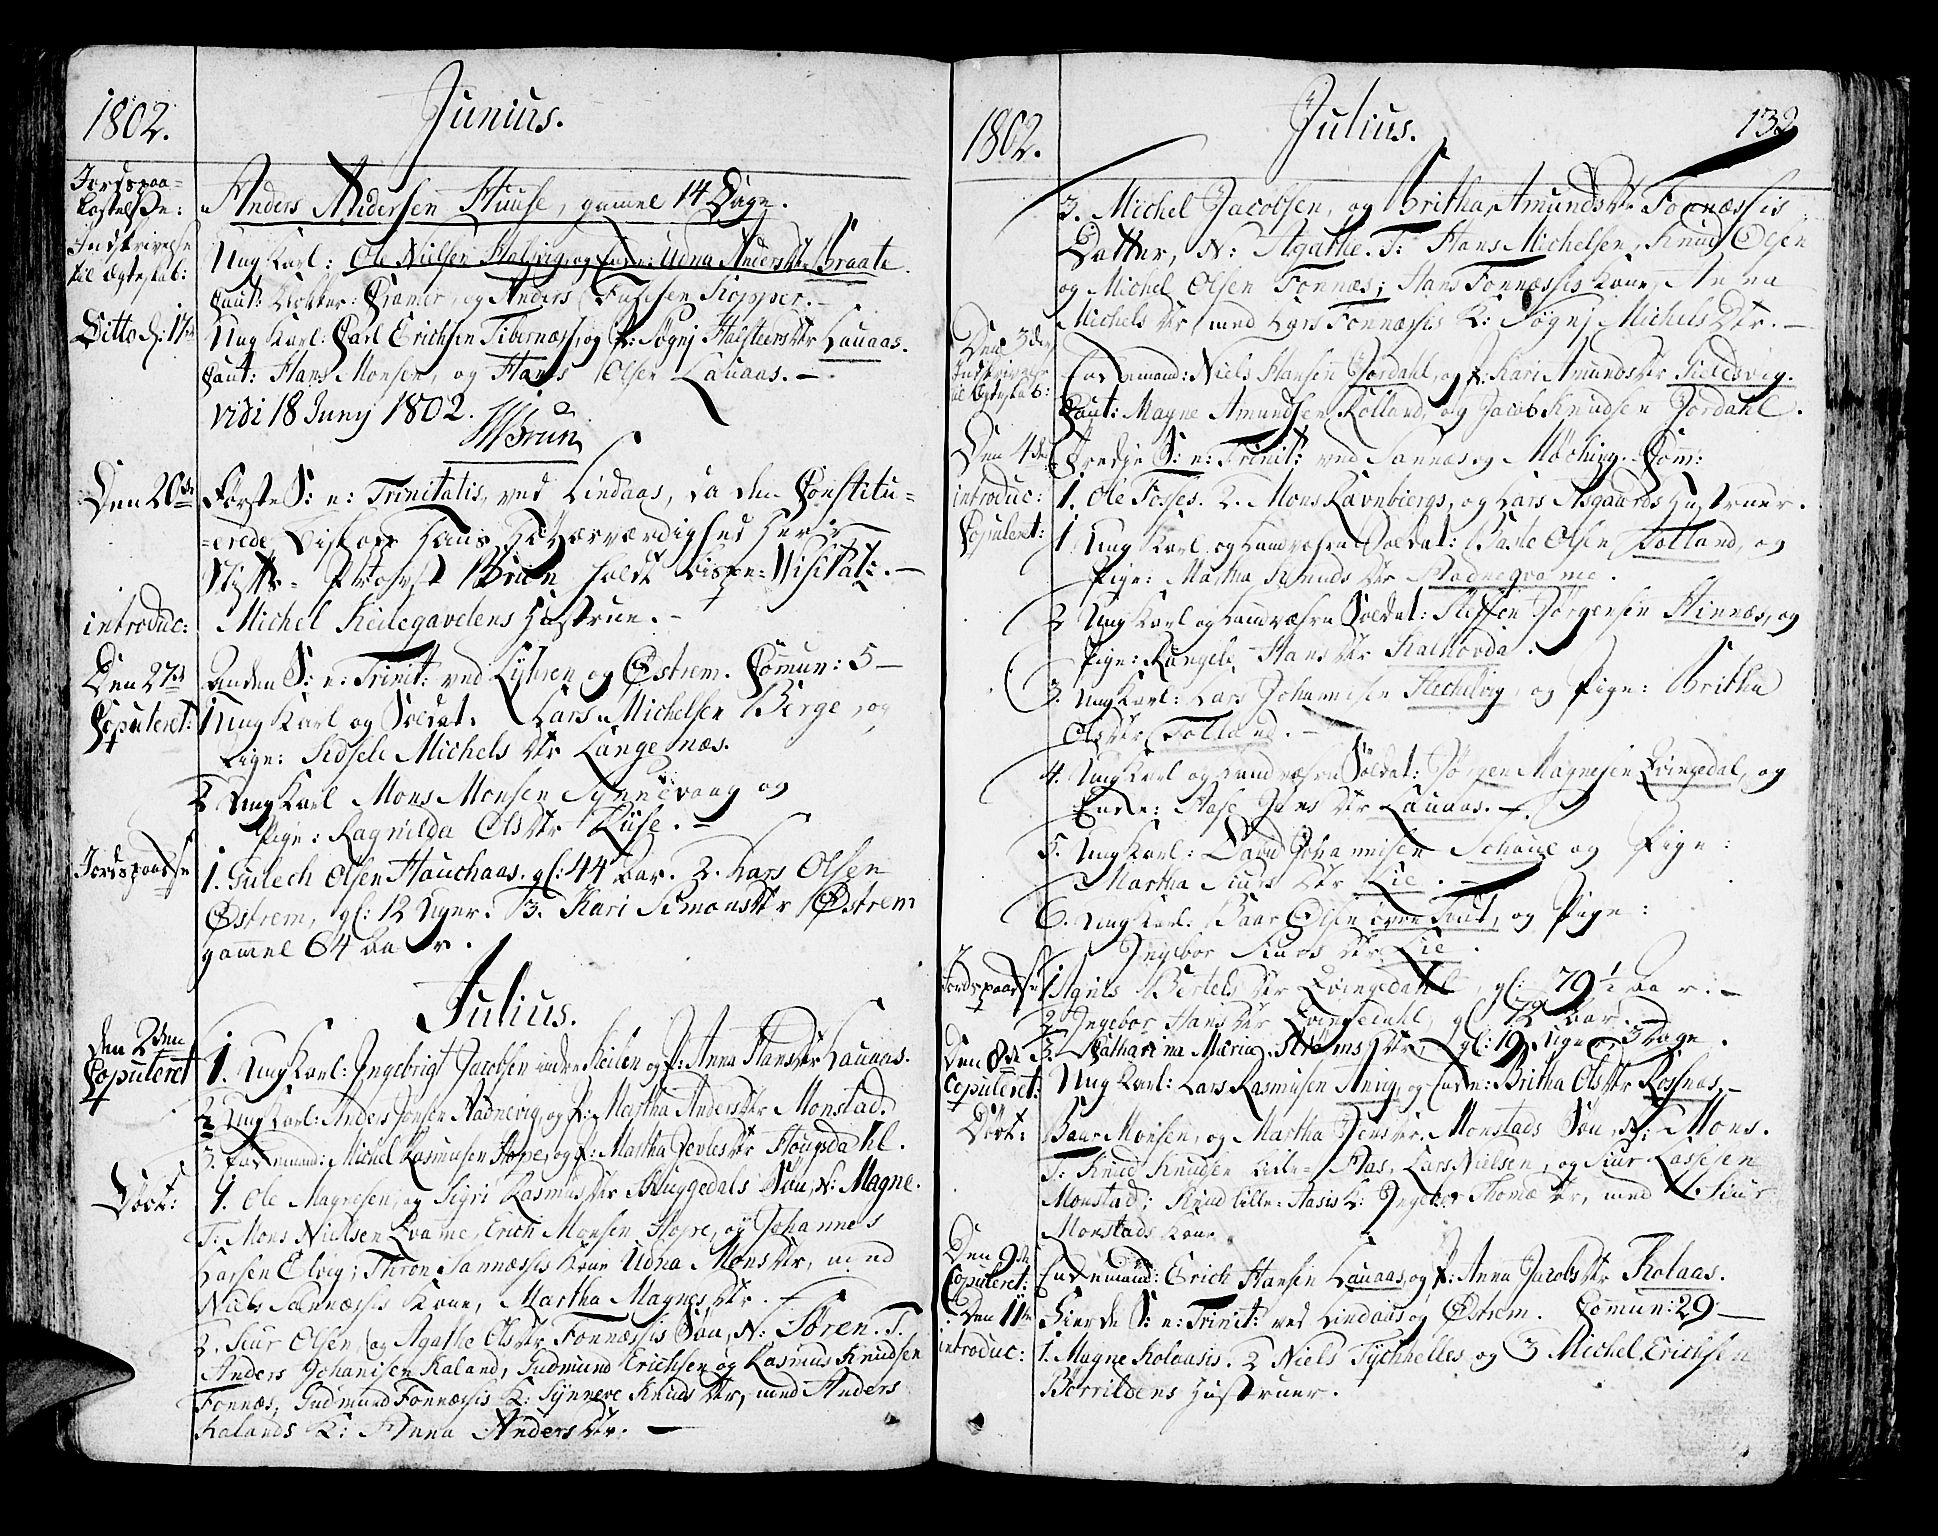 1802.
Junius.
Jordspaa=
kastelse:
Anders Andersen Huuse, gammel 14 Dage.
Indskrivelse
til Ægteskab:
Ung Karl: Ole Nielsen Halsvig, og Enke: Udna Andersdtr Braate.
Caut: Klokker: Cramer, og Anders Skopper.
Ditto d: 17de
Ung Karl: Carl Erichsen Tibernæss, og P: Søgnj Halsteensdtr Lauaas.
Caut: Hans Monsen, og Hans Olsen Lauaas. —
vidi 18 Junij 1802.
Brun
Den 20de
Første S: e: Trinitatis, ved Lindaas, da den Constitu=
=erede Biskop Hans Høyærværdighed Herr
Stifts= Provst Brun holdt Bispe= Visitatz: —
introduc:
Michel Keilegavelens Hustrue. —
Den 27de
Anden S: e: Trinit: ved Lykren og Østrem. Comun: 5 —
Copuleret:
1 Ung Karl og Soldat: Lars Michelsen Berge, og
Pige: Sidsele Michelsdtr Langenæs.
2 Ung Karl Mons Monsen Synnevaag og
Pige: Ragnilda Olsdtr Kuse. —
Jordspaast
1. Gulech Olsen Hauchaas. gl: 44 Aar. 2. Lars Olsen
Østrem, gl: 12 Uger. 3. Kari Simonsdtr Østrem
gammel 64 Aar.
Julius.
den 2den
Copuleret
1. Ung Karl: Ingebrigt Jacobsen indre Keilen og P: Anna Hansdtr Lauaas.
2 Ung Karl: Anders Jonsen Nadnevig, og P: Martha Andersdtr Monstad.
3. Enkemand: Michel Rasmusen Hope, og P: Martha Hougsdahl.
Døbt:
1. Ole Magnesen, og Sigri Rasmusdtr Skuggedals Søn, N: Magne.
T: Mons Nielsen Qvame, Erich Monsen Hope, og Johannes
Larsen Elvig; Thron Sannæssis Kone Udna Monsdtr, med
Niels Sannæssis Kone, Martha Magnesdtr. —
2. Siur Olsen, og Agathe Olsdtr Fonnæssis Søn, N: Søren. T.
Anders Johanisen Kaland, Gudmund Erichsen og Rasmus Knudsen
Fonnæs, Gudmund Fonnæssis K: Synneve Knudsdtr, med Anders
Kalands K: Anna Andersdtr. —
1802.
Julius.
132
3. Michel Jacobsen, og Britha Amundsdtr Fonnæssis
Datter, N: Agathe. T: Hans Michelsen, Knud Olsen
og Michel Olsen Fonnæs; Hans Fonnæssis Kone, Anna
Michelsdtr, med Lars Fonnæssis K: Søgnj Michelsdtr. —
Den 3de
Indskrivelse
til Ægteskab:
Enkemand: Niels Hansen Jordahl, og P: Kari Amundsdtr Fieldsvig.
Caut: Magne Amundsen Kolland, og Jacob Knudsen Jordahl.
Den 4de
Tredje S: e: Trinit: ved Sannæs og Møching. Com:
introduc:
1. Ole Fosses. 2. Mons Ravnbiergs, og Lars Aasgaards Hustruer.
Copuleret:
1 Ung Karl og Landværn Soldat: Baste Olsen Totland, og
Pige: Martha Amundsdtr Radneqvame.
2 Ung Karl og Landværn Soldat: Steffen Jørgensen Hinnæs, og
Pige: Rangele Hansdtr Kalhovda.
3. Ung Karl: Lars Johannisen Hechelvig, og Pige: Britha
Olsdtr Totland. —
4. Ung Karl og Landværn Soldat: Jørgen Magnesen Qvingedal, og
Enke: Aase Jonsdtr Lauaas. —
5. Ung Karl: David Johannisen Schoue og Pige:
Martha Siursdtr Lie. —
6. Ung Karl: Baar Olsen øvre Tout, og Pige:
Ingebor Siursdtr Lie.
Jordspaast
1 Agnis Bertelsdtr Qvingedahl, gl: 79 1/2 Aar. —
2. Ingebor Hansdtr Qvingedahl, gl: 72 Aar.
3. Catharina Maria Strøms dtr, gl: 19 Uger 3 Dage.
Den 8de
Copuleret:
Ung Karl: Lars Rasmusen Anig, og Enke: Britha Olsdtr Rosnæs. —
Døbt:
Baar Monsen, og Martha Jensdtr, Monstads Søn, N: Mons.
T: Knud Knudsen Lille= Aas, Lars Nielsen, og Siur Lassesen
Monstad; Knud Lille= Aasis K: Ingebor Thomædtr, med Siur
Monstads Kone.
Den 9de
Copuleret:
Enkemand: Erich Hansen Lauaas, og P: Anna Jacobsdtr Kolaas.
Den 11te
Fierde S: e: Trinit: ved Lindaas og Østrem. Comun: 29 —
introduc:
1. Magne Kolaasis. 2 Niels Tychhelles og 3 Michel Erichsen
Borrildens Hustruer.